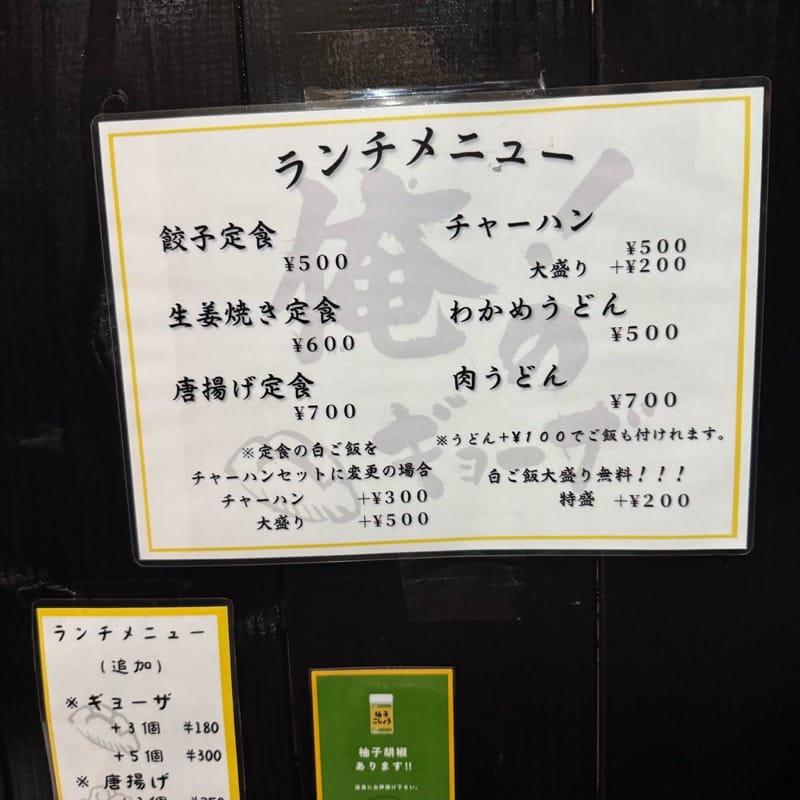 ランチメニュー
俺の！
ギョーザ
餃子定食
¥500
生姜焼き定食
¥600
唐揚げ定食
¥700
※定食の白ご飯を
チャーハンセットに変更の場合
チャーハン +¥300
大盛り +¥500
チャーハン
¥500
大盛り +¥200
わかめうどん
¥500
肉うどん
¥700
※うどん+¥100でご飯も付けれます。
白ご飯大盛り無料！！！
特盛 +¥200
ランチメニュー
(追加)
※ ギョーザ
+3個 ¥180
+5個 ¥300
※ 唐揚げ
柚子
こしょう
柚子胡椒
あります!!